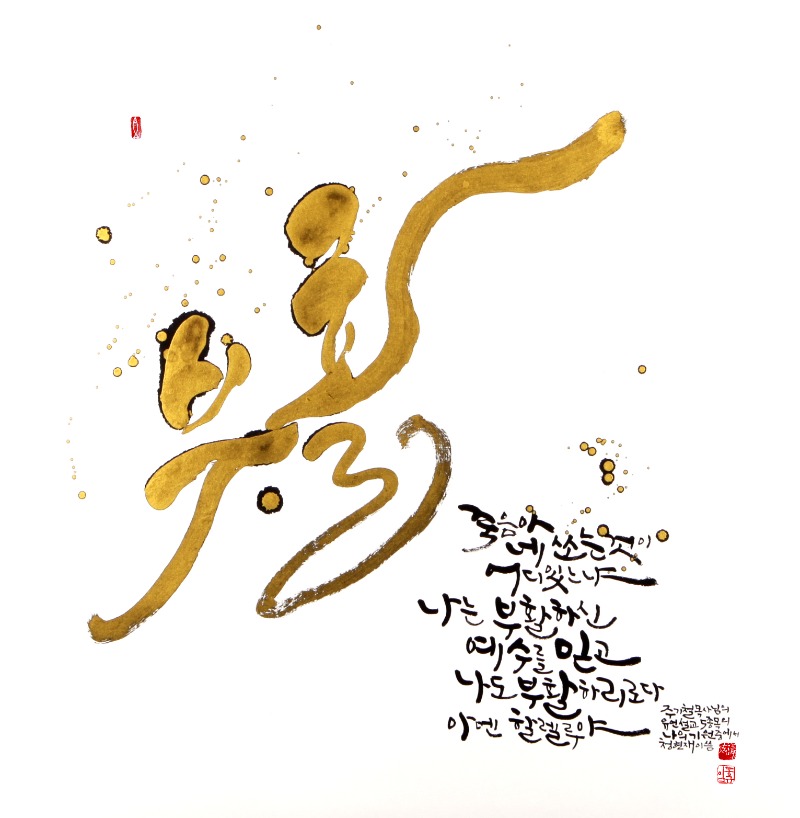 부활
죽음아
네 쏘는 것이
어디있느냐
나는 부활하신
예수를 믿고
나도 부활하리로다
아멘 할렐루야
주기철 목사님의
유언설교 5종목의
나의 기원중에서
청현재이 씀